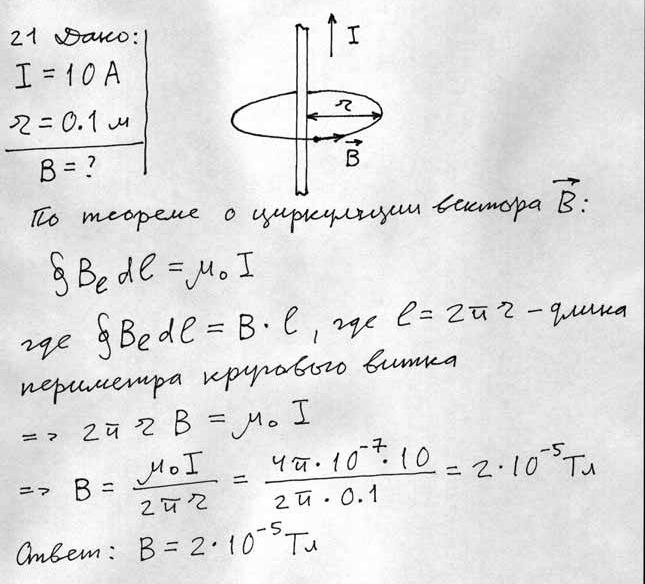 21 Дано:
I = 10 А
r = 0.1 м
B = ?
I
r
B⃗
По теореме о циркуляции вектора B⃗:
∮ Bₑ dl = μ₀ I
где ∮ Bₑ dl = B · l, где l = 2π r – длина
периметра кругового витка
=> 2π r B = μ₀ I
=> B = μ₀ I / 2π r = 4π · 10⁻⁷ · 10 / 2π · 0.1 = 2 · 10⁻⁵ Тл
Ответ: B = 2 · 10⁻⁵ Тл